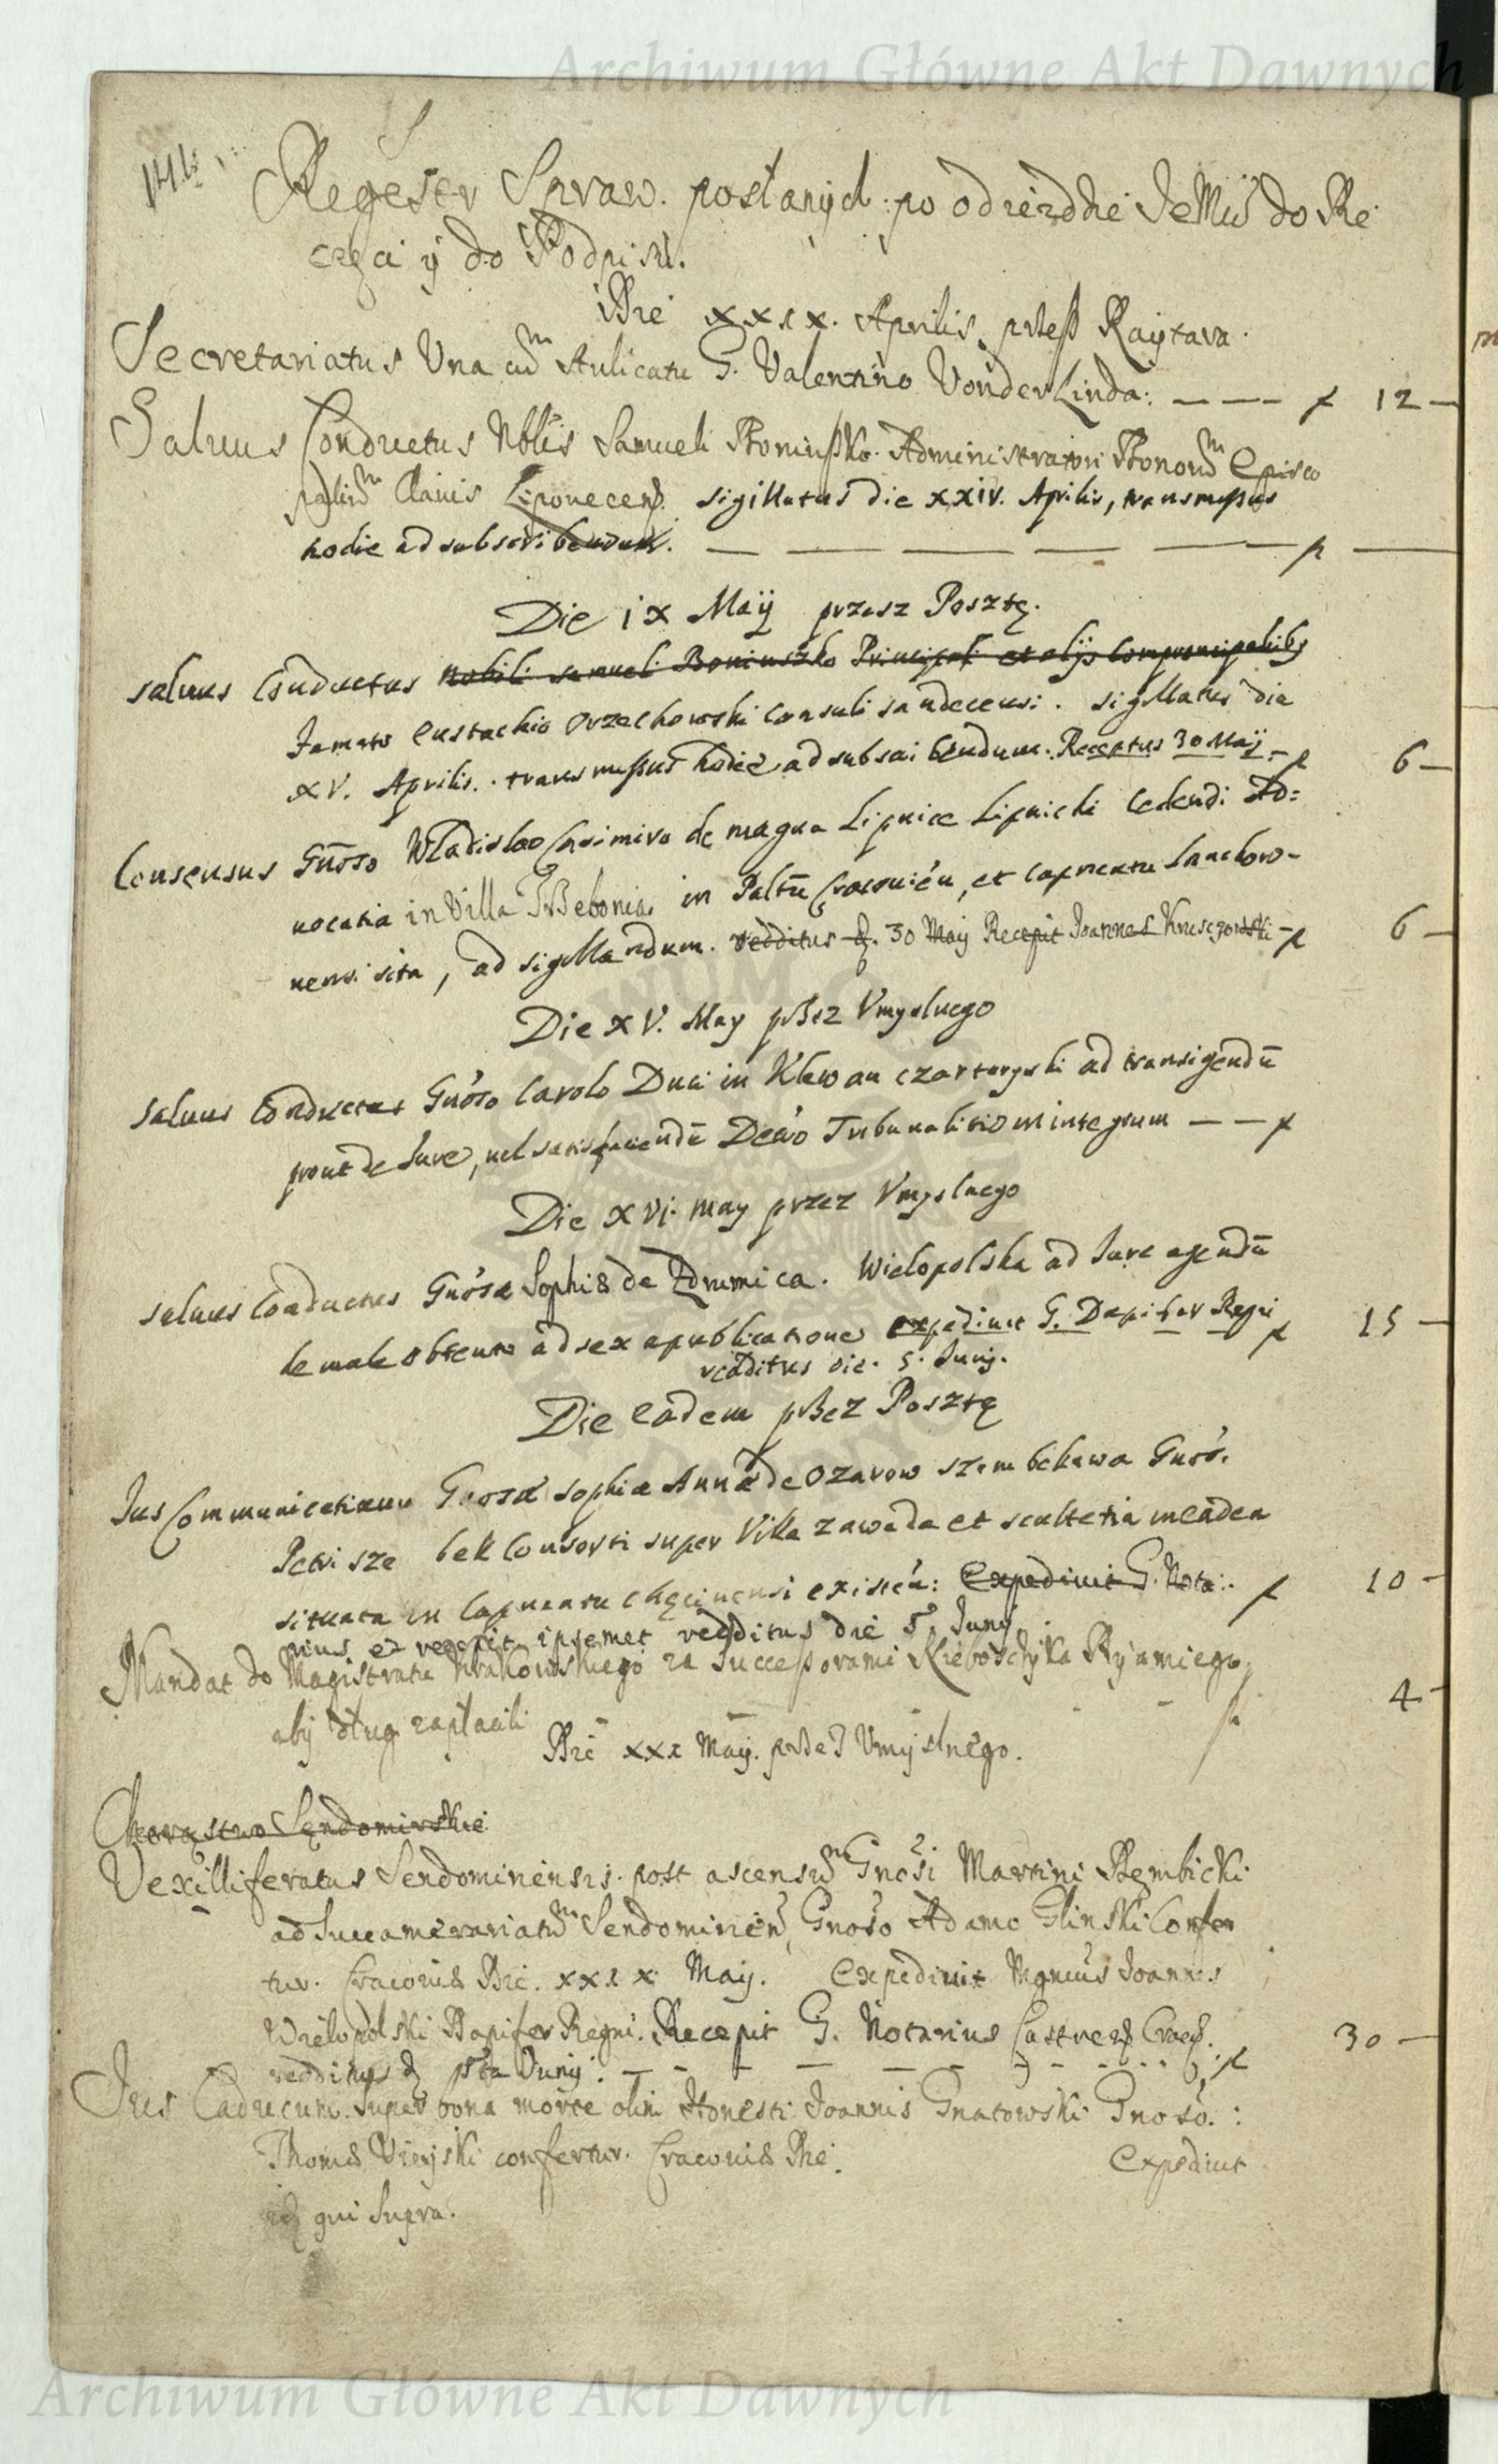 Archiwum Główne Akt Dawnych
Regestr Spraw. posłanych po odieżdzie JeMći do Pie
częci y do Podpisu.
Die xxix. Aprilis przesz Raytara.
Secretariatus Una cum Aulicatu G. Valentino Vonder Linda: — — — f 12 —
Salvus Conductus Nbli Samueli Boniuszko Administratori Bonorum Episco
palium Clavis Lipovecen. sigillatus die xxiv. Aprilis, transmissus
hodie ad subscribendum. — — — — — f —
Die ix Maij przesz Posztę.
salvus Conductus nobili Samueli Boniuszko Principali et alijs Comprincipalibus
Famato Eustachio Orzechowski Consuli sandecensi. sigillatus die
XV. Aprilis. transmissus hodie ad subscribendum. Receptus 30 Maij — f 6 —
Consensus Gnoso Wladislao Casimiro de magna Lipnice Lipnicki cedendi Ad=
vocatia in Villa Trzebonia in Paltu Cracovien, et Capneatu Lanckoro-
nensi sita, ad sigillandum. redditus d. 30 May Recepit Joannes Kruszowski — f 6 —
Die XV. May przez Vmyslnego
salvus Conductus Gnoso Carolo Duci in Klewan czartoryski ad transigendum
prout de Iure, vel satisfaciendu Decto Tribunalitio in integrum — — f
Die XVI. May przez Vmyslnego
salvus Conductus Gnosæ Sophiæ de Zdrumica. Wielopolska ad Iure agendu
de male obtento ad sex a publicatione expedivit G. Dapifer Regni f 15 —
redditus die. 5. Junij.
Die eadem przez Posztę
Ius Communicativum Gnosæ Sophiæ Annæ de Ozarow szembekowa Gnosi.
Petri szembek Consorti super Villa zawada et scultetia in eadem
situata in Capneatu chęcinensi existen: Expedivit G. Nota: f 10 —
rius et recepit ipsemet redditus die 5. Juny.
Mandat do Magistratu Krakowskiego za Successorami
aby dług zapłacili f 4 —
Die xxx May. przez Vmyslnego.
Chorąstwo Sendomirskie
Vexilliferatus Sendomiriensis. post ascensum Gnosi Martini Dembicki
ad Succamerariatum Sendomirien, Gnoso Adamo Glinski Confer
tur. Cracoviæ Die. xxix May. Expedivit Mgncus Joannes
Wielopolski Dapifer Regni. Recepit G. Notarius Castren. Crac.
redditus d. 5ta Junij. — — — — — f 30 —
Ius Caducum super bona morte olim Honesti Joannis Gnatowski Gnoso.:
Thomæ Uieyski confertur. Cracoviæ Die. Expedivit
id. qui supra.
Archiwum Główne Akt Dawnych